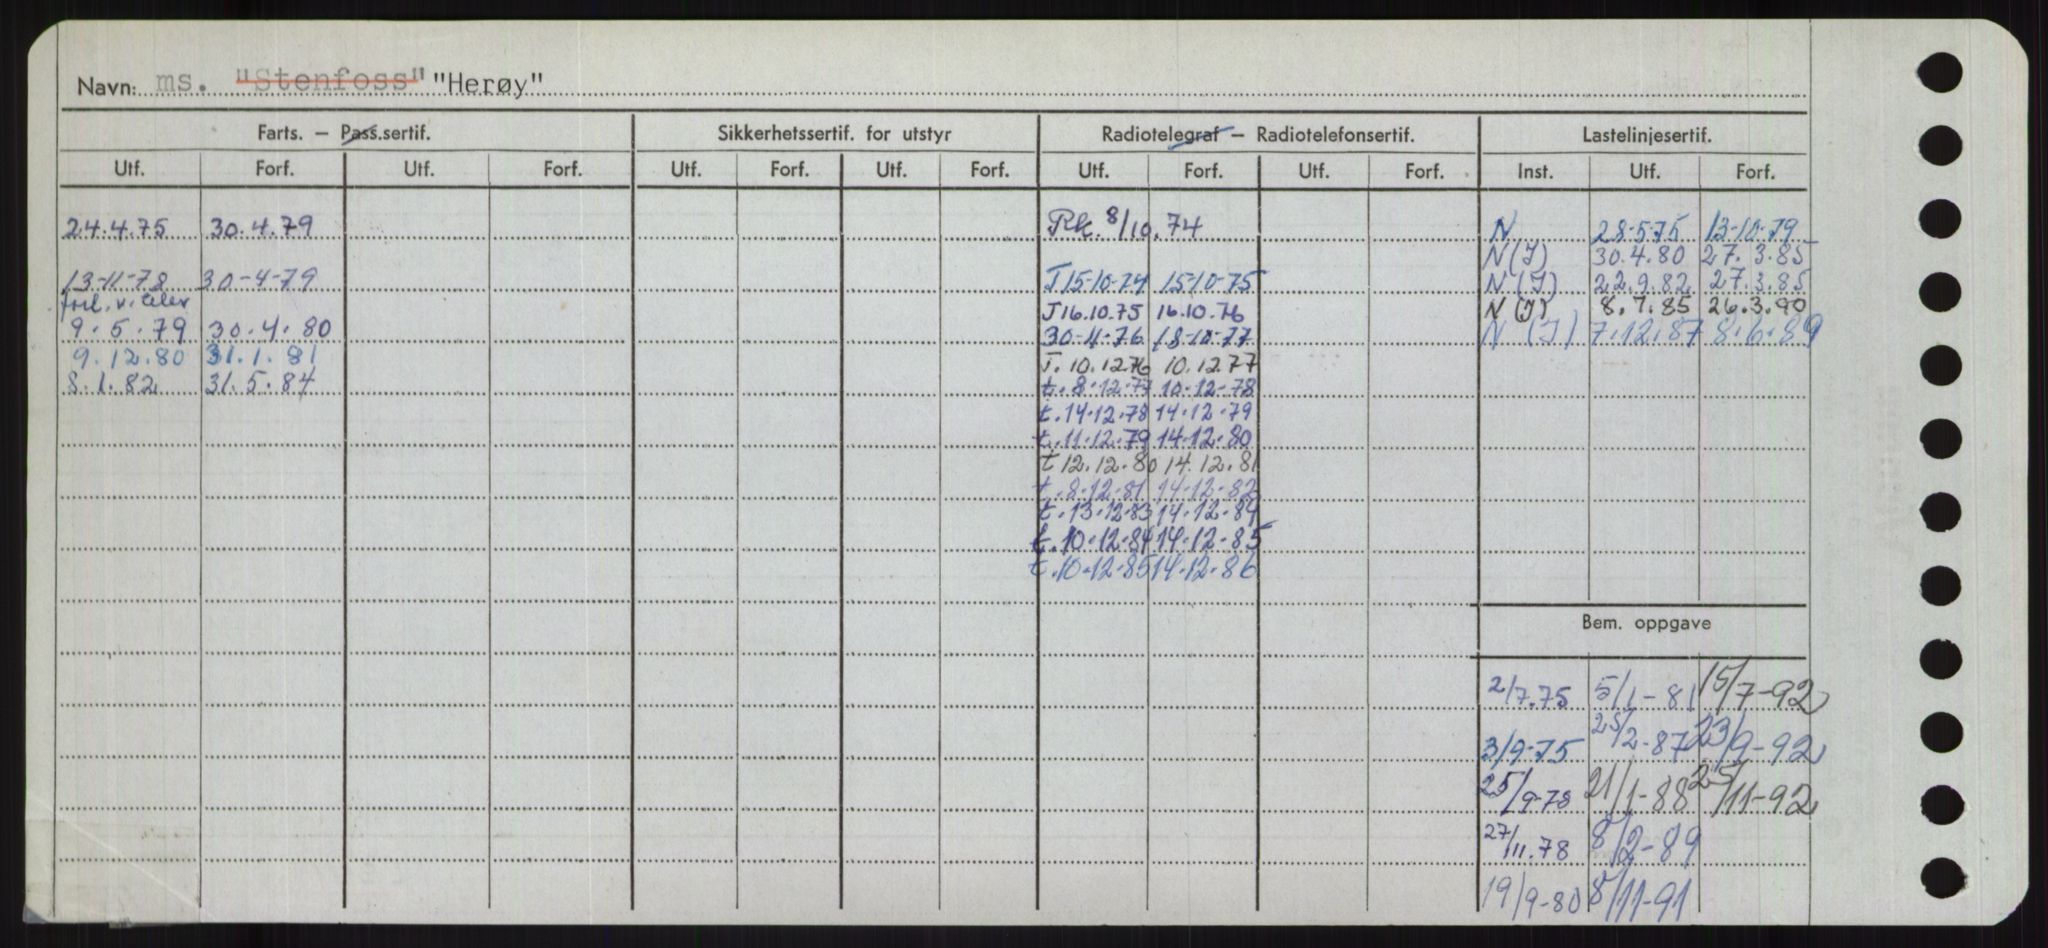 Navn: ms. "Stenfoss" "Herøy"
Farts. — Pass.sertif. Sikkerhetssertif. for utstyr Radiotelegraf — Radiotelefonsertif. Lastelinjesertif.
Utf. Forf. Utf. Forf. Utf. Forf. Utf. Forf. Utf. Forf. Utf. Forf. Inst. Utf. Forf.
24.4.75 30.4.79 Rk. 8/10.74 N 28-5-75 13-10-79
N(I) 30.4.80 27.3.85
13-11-78 30-4-79 T 15-10-74 15-10-75 N(I) 22.9.82 27.3.85
forl. v. telex J 16.10.75 16.10.76 N(I) 8.7.85 26.3.90
9.5.79 30.4.80 30-11-76 18-10-77 N (I) 7.12.87 8.6.89
9.12.80 31.1.81 T. 10.12.76 10.12.77
8.1.82 31.5.84 t. 8.12.77 10-12-78
t. 14.12.78 14.12.79
t. 11.12.79 14.12.80
t 12.12.80 14.12.81
t. 8.12.81 14.12.82
t. 13.12.83 14.12.84
t. 10.12.84 14.12.85
t. 10.12.85 14.12.86
Bem. oppgave
2/7.75 5/1-81 15/7-92
3/9-75 25/2-87 23/9-92
25/9-78 21/1-88 25/11-92
27/11.78 8/2-89
19/9-80 8/11-91